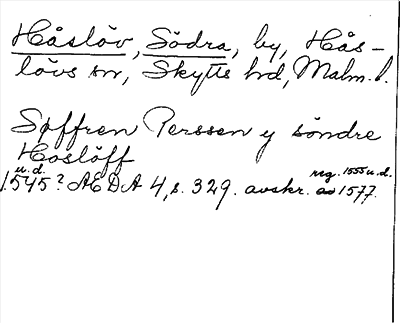 Håslöv, Södra, by, Hås-
lövs sn, Skytts hd, Malm. l.
Soffren Perssen y söndre
Hoslöff
u.d. reg. 1555 u.d.
1545? AEDA 4, s. 329. avskr. av 1577.